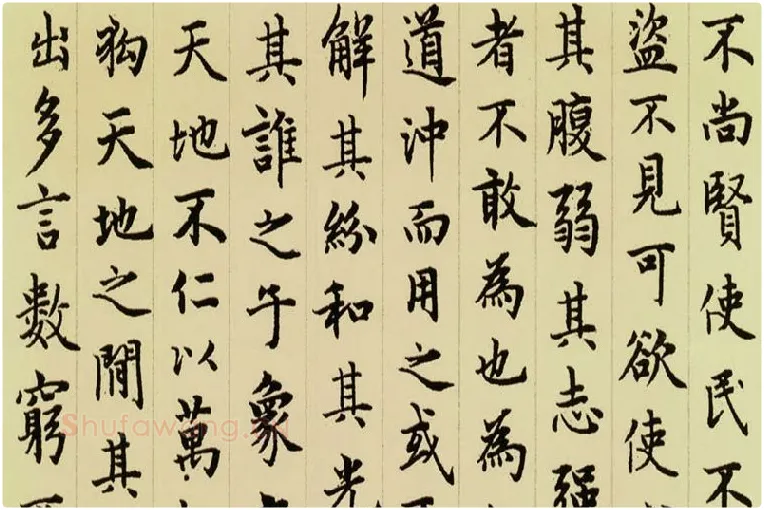 不尚賢使民不
盜不見可欲使
其腹弱其志强
者不敢為也為
道沖而用之或
解其紛和其光
其誰之子象
天地不仁以萬
狗天地之間其
出多言數窮
Shufawang.cn